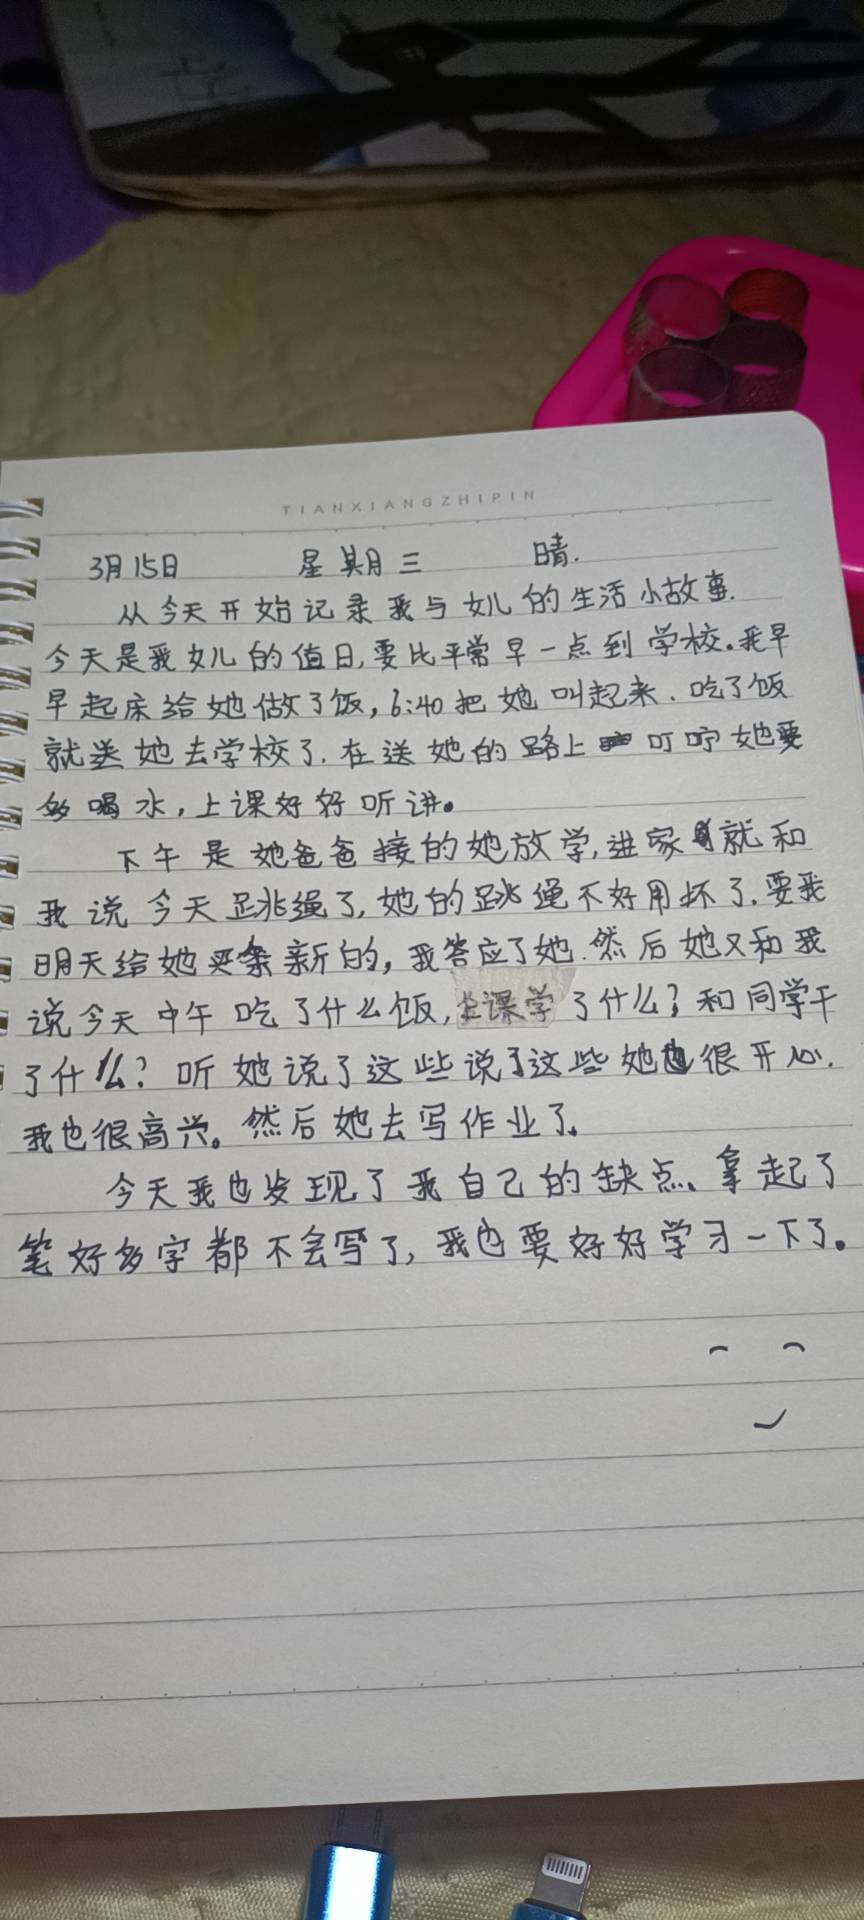 TIANXIANGZHIPIN
3月15日 星期三 晴.
从今天开始记录我与女儿的生活小故事.
今天是我女儿的值日,要比平常早一点到学校。我早
早起床给她做了饭,6:40把她叫起来.吃了饭
就送她去学校了.在送她的路上叮咛她要
多喝水,上课好好听讲。
下午是她爸爸接的她放学,进家就和
我说今天跳绳了,她的跳绳不好用坏了.要我
明天给她买条新的,我答应了她.然后她又和我
说今天中午吃了什么饭,上课学了什么?和同学干
了什么?听她说了这些说了这些她也很开心.
我也很高兴。然后她去写作业了。
今天我也发现了我自己的缺点、拿起了
笔好多字都不会写了,我也要好好学习一下了。